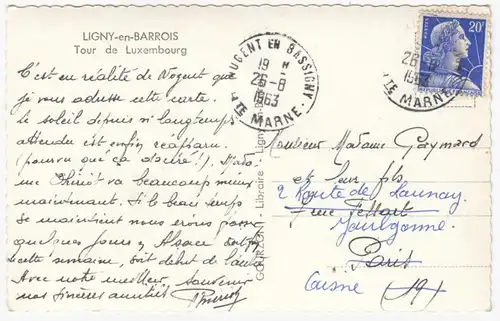 LIGNY-en-BARROIS
Tour de Luxembourg
C'est en réalité de Nogent que
je vous adresse cette carte.
Le soleil depuis si longtemps
attendu est enfin réapparu.
(pourvu que ça dure!). Mada-
me Thiriot va beaucoup mieux
maintenant. Si le beau temps
se maintient nous irons passer
quelques jours en Alsace
cette semaine, soit début de l'autre
Avec notre meilleur souvenir
nos sincères amitiés
NOGENT EN BASSIGNY
19 H
26-8
1963
HTE MARNE
20F
26-8
1963
HTE MARNE
Libraire - Ligny-
Monsieur Madame Gaymard
et leur fils
2 Route de Launay
7 rue
Jaulgonne
Paris
Aisne (19)